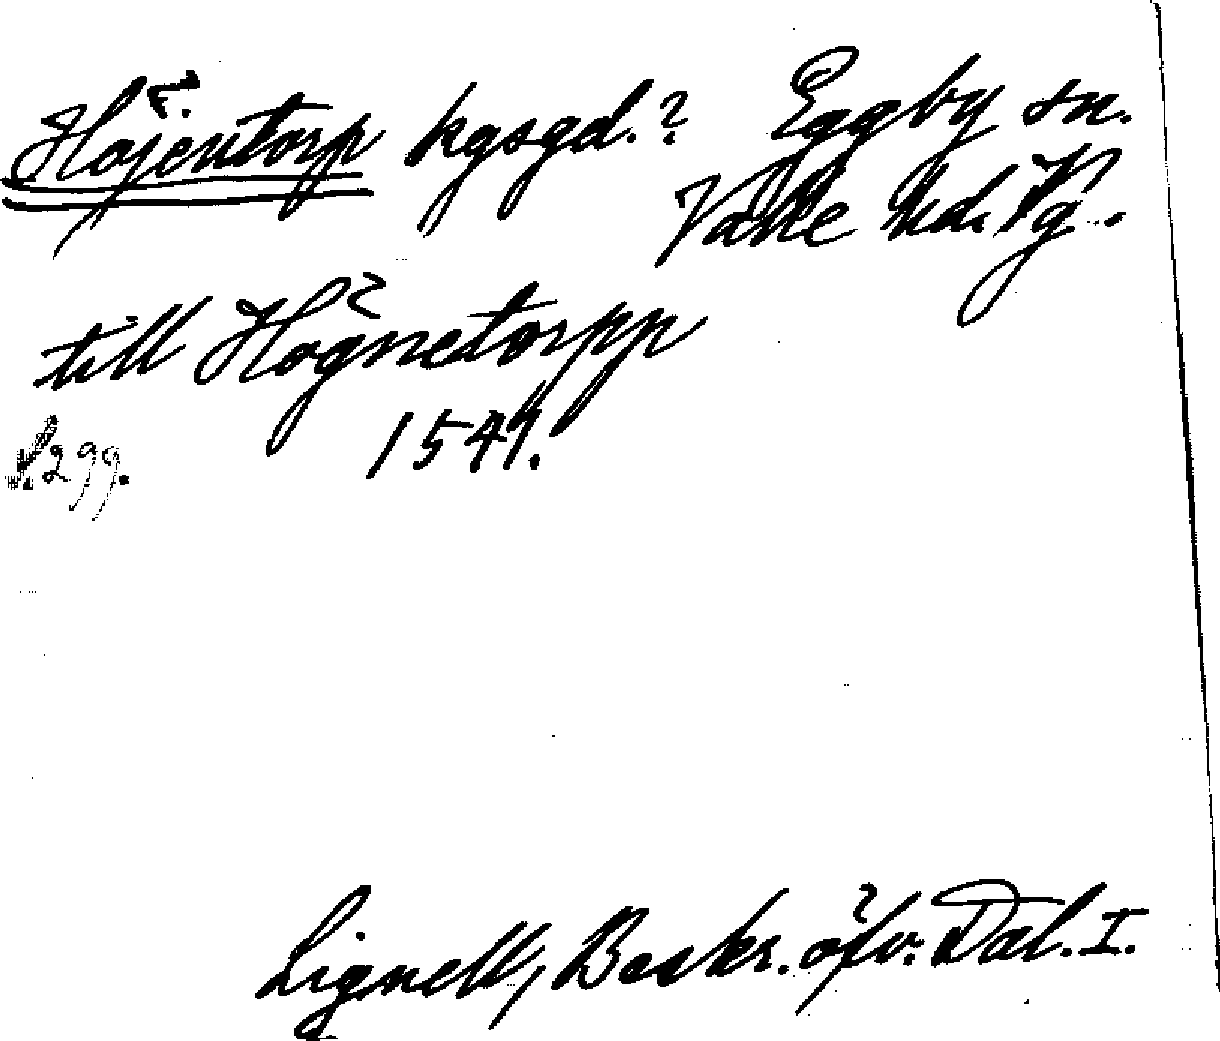 Höjentorp kgsgd.? Eggby sn.
Valle hd. Vg.
till Högnetorpp
1547.
S. 299.
Lignell, Beskr. öfv. Dal. I.